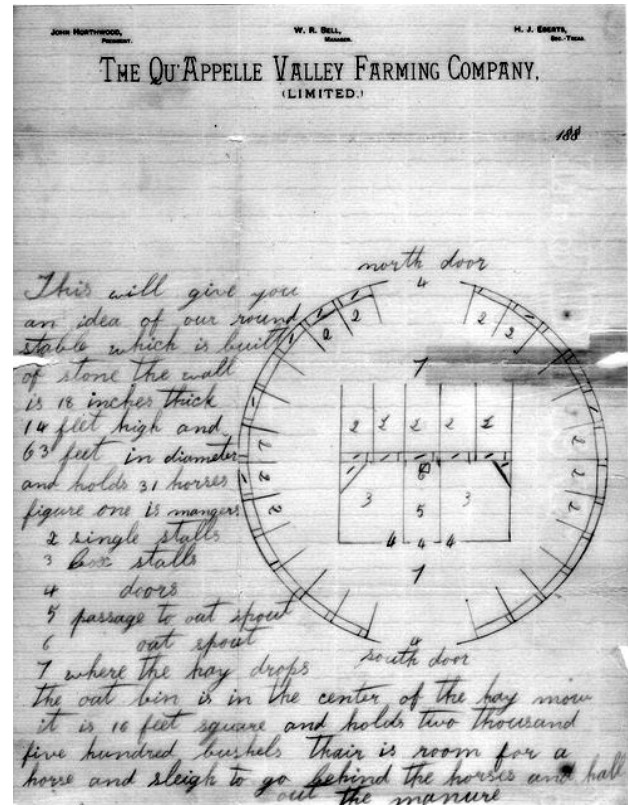 JOHN NORTHWOOD,
PRESIDENT.
W. R. BELL,
MANAGER.
H. J. EBERTS,
SEC.-TREAS.
THE QU'APPELLE VALLEY FARMING COMPANY,
(LIMITED.)
188
north door
4
This will give you
an idea of our round
stable which is built
of stone the wall
is 18 inches thick
14 feet high and
63 feet in diameter
and holds 31 horses
figure one is mangers
2 single stalls
3 box stalls
4 doors
5 passage to oat spout
6 oat spout
7 where the hay drops
2 2 2 2
7
2 2 2 2 2
2 2 2
2 2 2
6
3 5 3
4 4 4
7
4
south door
the oat bin is in the center of the hay mow
it is 16 feet square and holds two thousand
five hundred bushels thair is room for a
horse and sleigh to go behind the horses and hall
out the manure